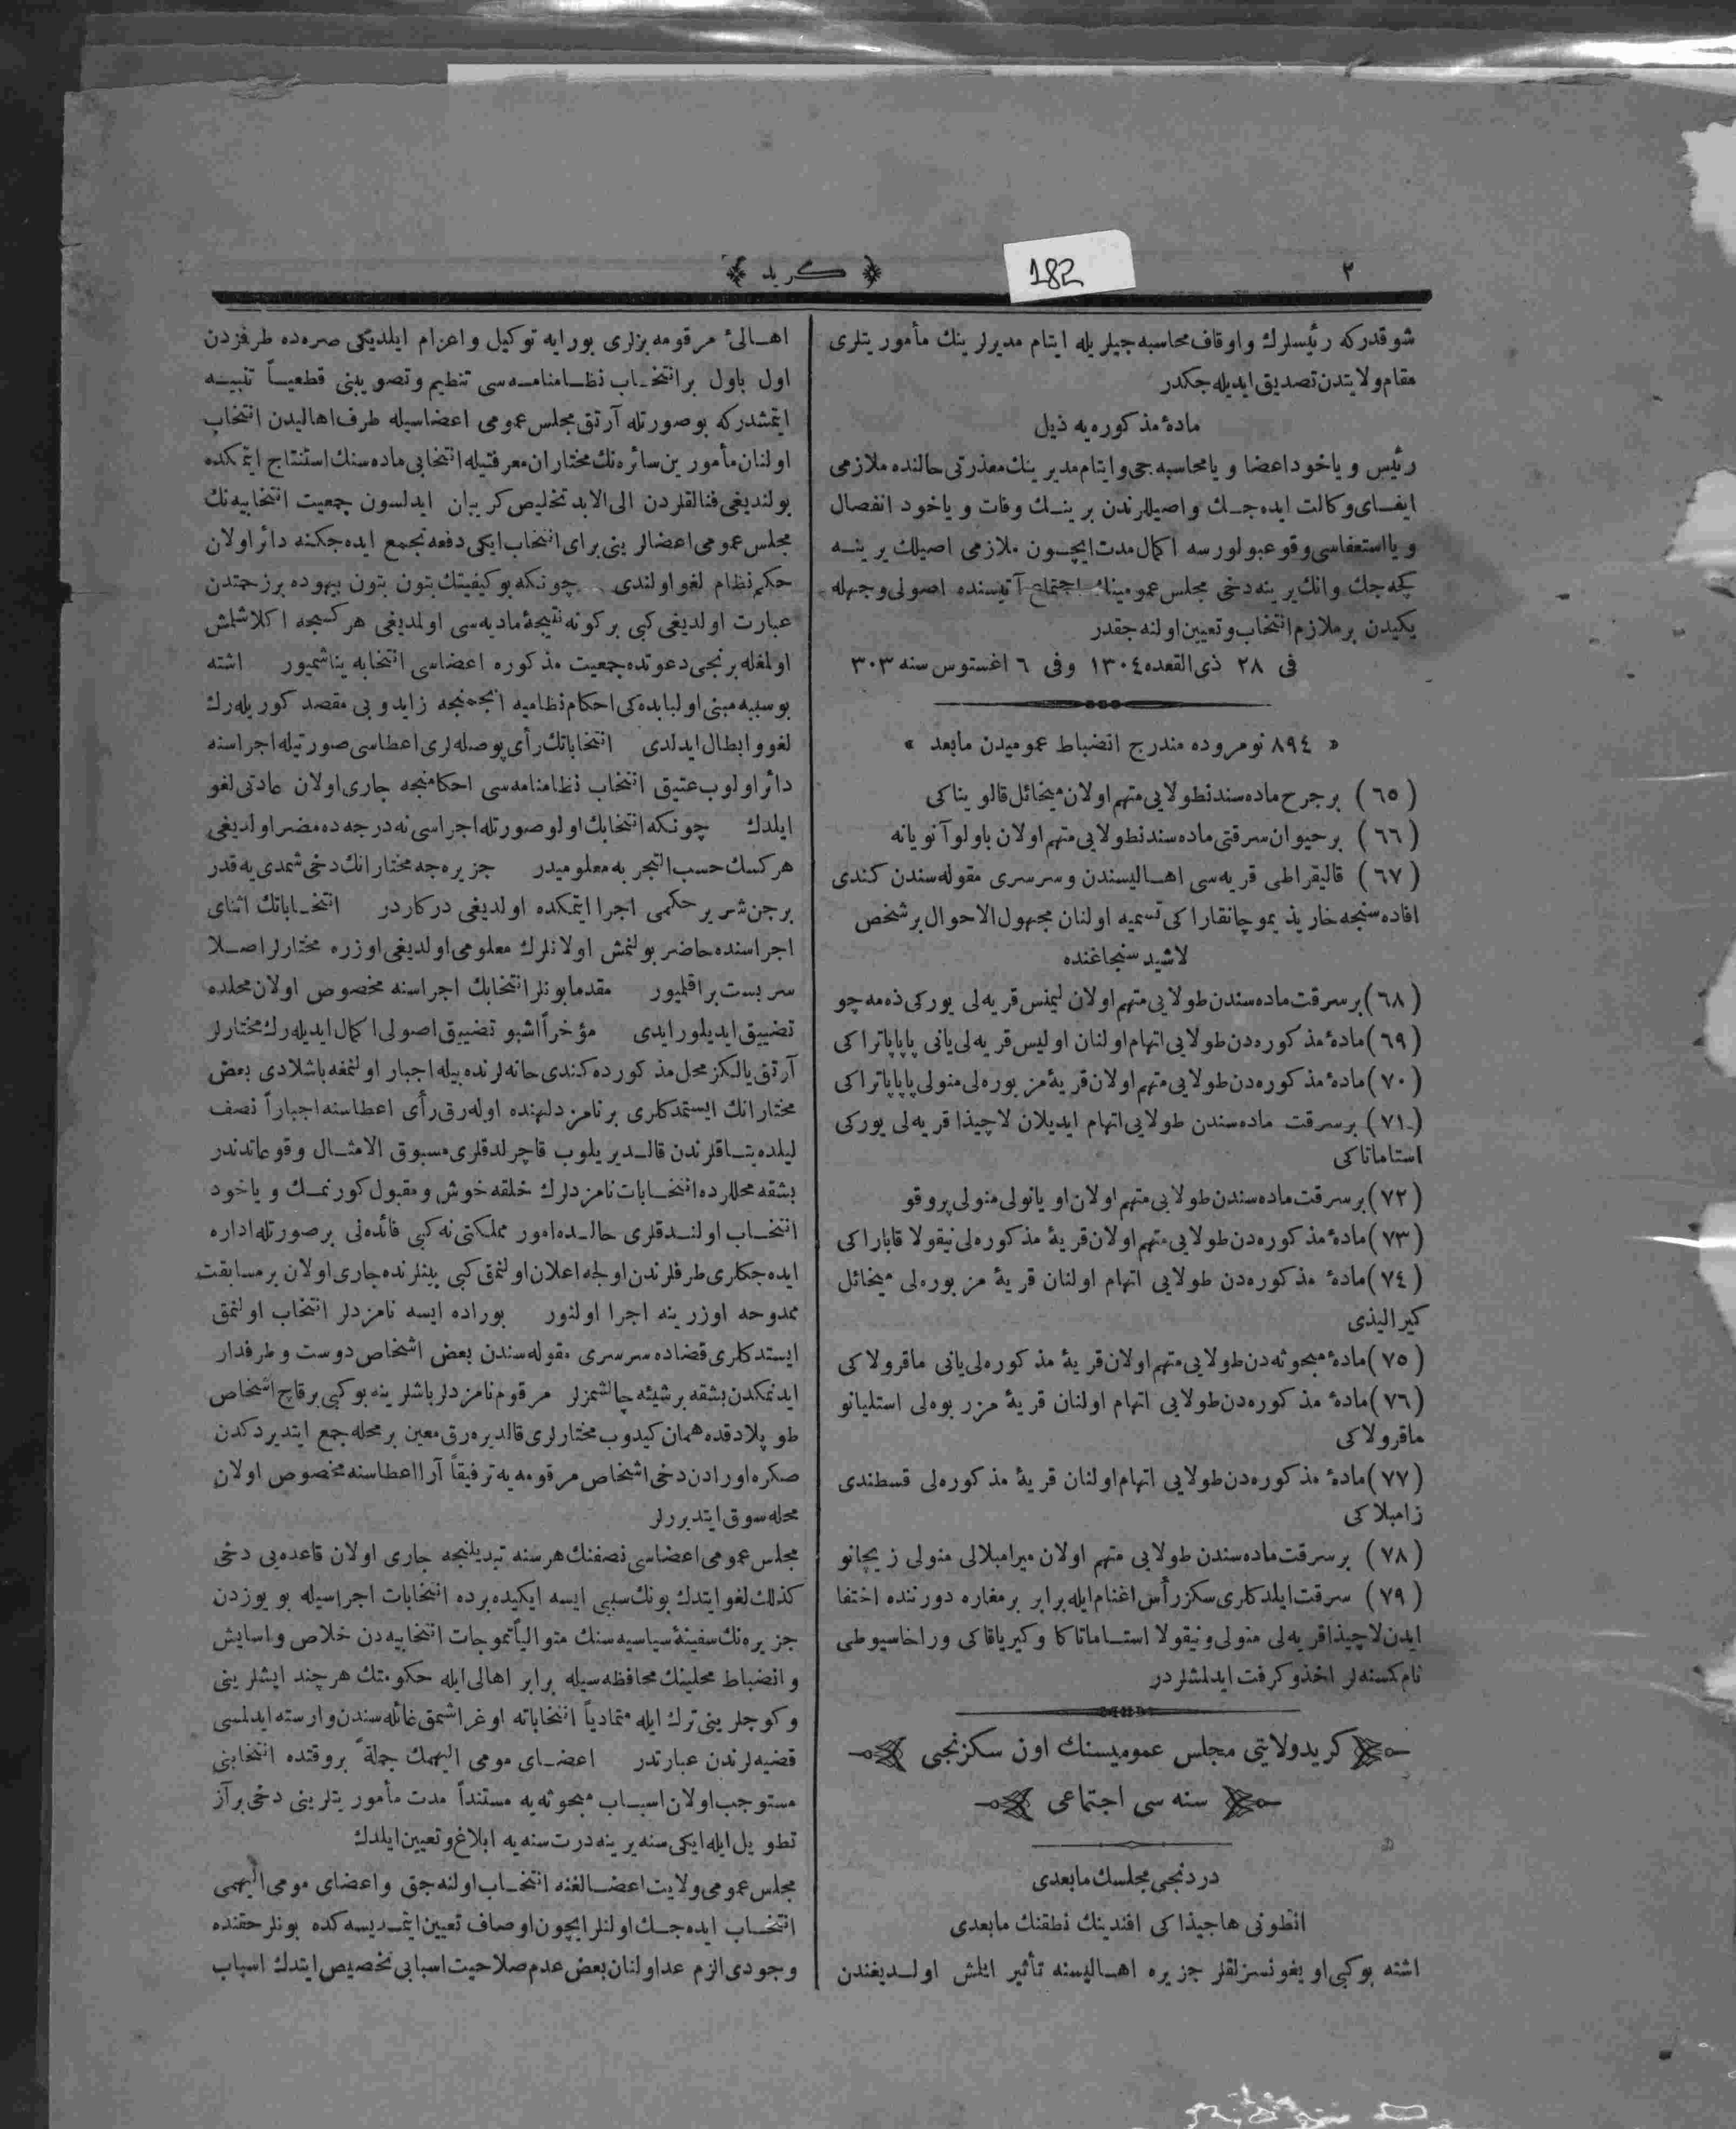 ٢
182
﴿ كريد ﴾
شوقدركه رئيسلرك و اوقاف محاسبه جيلريله ايتام مديرلرينك مأموريتلرى
مقام ولايتدن تصديق ايديله جكدر
مادۀ مذكوره يه ذيل
رئيس و ياخود اعضا و يا محاسبه جى و ايتام مديرينك معذرتى حالنده ملازمى
ايفاى وكالت ايده جك و اصيللرندن برينك وفات و ياخود انفصال
و يا استعفاسى وقوعبولورسه اكمال مدت ايچون ملازمى اصيلك يرينه
كچه جك و انك يرينه دخى مجلس عمومينك اجتماع آتيسنده اصولى وجهله
يكيدن بر ملازم انتخاب و تعيين اولنه جقدر
فى ٢٨ ذى القعده ١٣٠٤ و فى ٦ اغستوس سنه ٣٠٣
« ٨٩٤ نومروده مندرج انضباط عموميدن مابعد »
(٦٥) بر جرح ماده سندنطولايى متهم اولان ميخائل قالويناكى
(٦٦) بر حيوان سرقتى ماده سندنطولايى متهم اولان باولو آنويانه
(٦٧) قاليقراطى قريه سى اهاليسندن و سرسرى مقوله سندن كندى
افاده سنجه خاريذيمو چانقاراكى تسميه اولنان مجهول الاحوال بر شخص
لاشيد سنجاغنده
(٦٨) بر سرقت ماده سندن طولايى متهم اولان ليمنس قريه لى يوركى ذه مه چو
(٦٩) مادۀ مذكوره دن طولايى اتهام اولنان اوليس قريه لى يانى پاپاپاتراكى
(٧٠) مادۀ مذكوره دن طولايى متهم اولان قريۀ مزبوره لى منولى پاپاپاتراكى
(٧١) بر سرقت ماده سندن طولايى اتهام ايديلان لاچيذا قريه لى يوركى
استاماتاكى
(٧٢) بر سرقت ماده سندن طولايى متهم اولان اويانولى منولى پروقو
(٧٣) مادۀ مذكوره دن طولايى متهم اولان قريۀ مذكوره لى نيقولا قاباراكى
(٧٤) مادۀ مذكوره دن طولايى اتهام اولنان قريۀ مزبوره لى ميخائل
كيراليذى
(٧٥) مادۀ مبحوثه دن طولايى متهم اولان قريۀ مذكوره لى يانى ماقرولاكى
(٧٦) مادۀ مذكوره دن طولايى اتهام اولنان قريۀ مزربوه لى استليانو
ماقرولاكى
(٧٧) مادۀ مذكوره دن طولايى اتهام اولنان قريۀ مذكوره لى قسطندى
زامبلاكى
(٧٨) بر سرقت ماده سندن طولايى متهم اولان ميرامبلالى منولى زيچانو
(٧٩) سرقت ايلدكلرى سكز رأس اغنام ايله برابر بر مغاره دورننده اختفا
ايدن لاچيذا قريه لى منولى و نيقولا استاماتاكا و كيرياقاكى وراخاسيوطى
نام كسنه لر اخذ و كرفت ايدلمشلردر
كريد ولايتى مجلس عموميسنك اون سكزنجى
سنه سى اجتماعى
دردنجى مجلسك مابعدى
انطونى هاجيذاكى افندينك نطقنك مابعدى
اشته بوكبى اويغونسزلقلر جزيره اهاليسنه تأثير ايتمش اولديغندن
اهالئ مرقومه بزلرى بورايه توكيل و اعزام ايلديكى صره ده طرفزدن
اول باول بر انتخاب نظامنامه سى تنظيم و تصويبنى قطعياً تنبيه
ايتمشدركه بو صورتله آرتق مجلس عمومى اعضاسيله طرف اهاليدن انتخاب
اولنان مأمورين سائره نك مختاران معرفتيله انتخابى ماده سنك استنتاج ايتمكده
بولنديغى فنالقلردن الى الابد تخليص كريبان ايدلسون جمعيت انتخابيه نك
مجلس عمومى اعضالرينى براى انتخاب ايكى دفعه تجمع ايده جكنه دائر اولان
حكم نظام لغو اولندى چونكه بو كيفيتك بتون بتون بيهوده بر زحمتدن
عبارت اولديغى كبى بركونه نتيجۀ ماديه سى اولمديغى هركسجه اكلاشلمش
اولمغله برنجى دعوتده جمعيت مذكوره اعضاسى انتخابه يناشميور اشته
بوسببه مبنى اولبابده كى احكام نظاميه انجمنجه زايد و بى مقصد كوريله رك
لغو و ابطال ايدلدى انتخاباتك رأى پوصله لرى اعطاسى صورتيله اجراسنه
دائر اولوب عتيق انتخاب نظامنامه سى احكامنجه جارى اولان عادتى لغو
ايلدك چونكه انتخابك اولوصورتله اجراسى نه درجه ده مضر اولديغى
هركسك حسب التجربه معلوميدر جزيره جه مختارانك دخى شمدى يه قدر
برجن شربر حكمى اجرا ايتمكده اولديغى دركاردر انتخاباتك اثناى
اجراسنده حاضر بولنمش اولانلرك معلومى اولديغى اوزره مختارلر اصلا
سربست براقلميور مقدما بونلر انتخابك اجراسنه مخصوص اولان محلده
تضييق ايديلور ايدى مؤخراً اشبو تضييق اصولى اكمال ايديله رك مختارلر
آرتق يالكز محل مذكورده كندى خانه لرنده بيله اجبار اولنمغه باشلادى بعض
مختارانك ايستمدكلرى بر نامزد لهنده اوله رق رأى اعطاسنه اجباراً نصف
ليلده يتاقلرندن قالديريلوب قاچرلدقلرى مسبوق الامثال وقوعاتدندر
بشقه محللرده انتخابات نامزدلرك خلقه خوش و مقبول كورنمك و ياخود
انتخاب اولندقلرى حالده امور مملكتى نه كبى فائده لى بر صورتله اداره
ايده جكلرى طرفلرندن اولجه اعلان اولنمق كبى بينلرنده جارى اولان بر مسابقت
ممدوحه اوزرينه اجرا اولنور بوراده ايسه نامزدلر انتخاب اولنمق
ايستدكلرى قضاده سرسرى مقوله سندن بعض اشخاص دوست و طرفدار
ايدنمكدن بشقه بر شيئه چالشمزلر مرقوم نامزدلر باشلرينه بوكبى برقاچ اشخاص
طوپلادقده همان كيدوب مختارلرى قالديره رق معين بر محله جمع ايتديردكدن
صكره اورادن دخى اشخاص مرقومه يه ترفيقاً آرا اعطاسنه مخصوص اولان
محله سوق ايتديررلر
مجلس عمومى اعضاسى نصفنك هر سنه تبديلنجه جارى اولان قاعده يى دخى
كذلك لغو ايتدك بونك سببى ايسه ايكيده برده انتخابات اجراسيله بو يوزدن
جزيره نك سفينۀ سياسيه سنك متوالياً تموجات انتخابيه دن خلاص و اسايش
و انضباط محلينك محافظه سيله برابر اهالى ايله حكومتك هر چند ايشلرينى
و كوجلرينى ترك ايله متمادياً انتخاباته اوغراشمق غائله سندن وارسته ايدلمسى
قضيه لرندن عبارتدر اعضاى مومى اليهمك جملةً بر وقتده انتخابنى
مستوجب اولان اسباب مبحوثه يه مستنداً مدت مأموريتلرينى دخى برآز
تطويل ايله ايكى سنه يرينه درت سنه يه ابلاغ و تعيين ايلدك
مجلس عمومى ولايت اعضالغنه انتخاب اولنه جق و اعضاى مومى اليهمى
انتخاب ايده جك اولنلر ايچون اوصاف تعيين ايتمديسه كده بونلر حقنده
وجودى الزم عد اولنان بعض عدم صلاحيت اسبابى تخصيص ايتدك اسباب